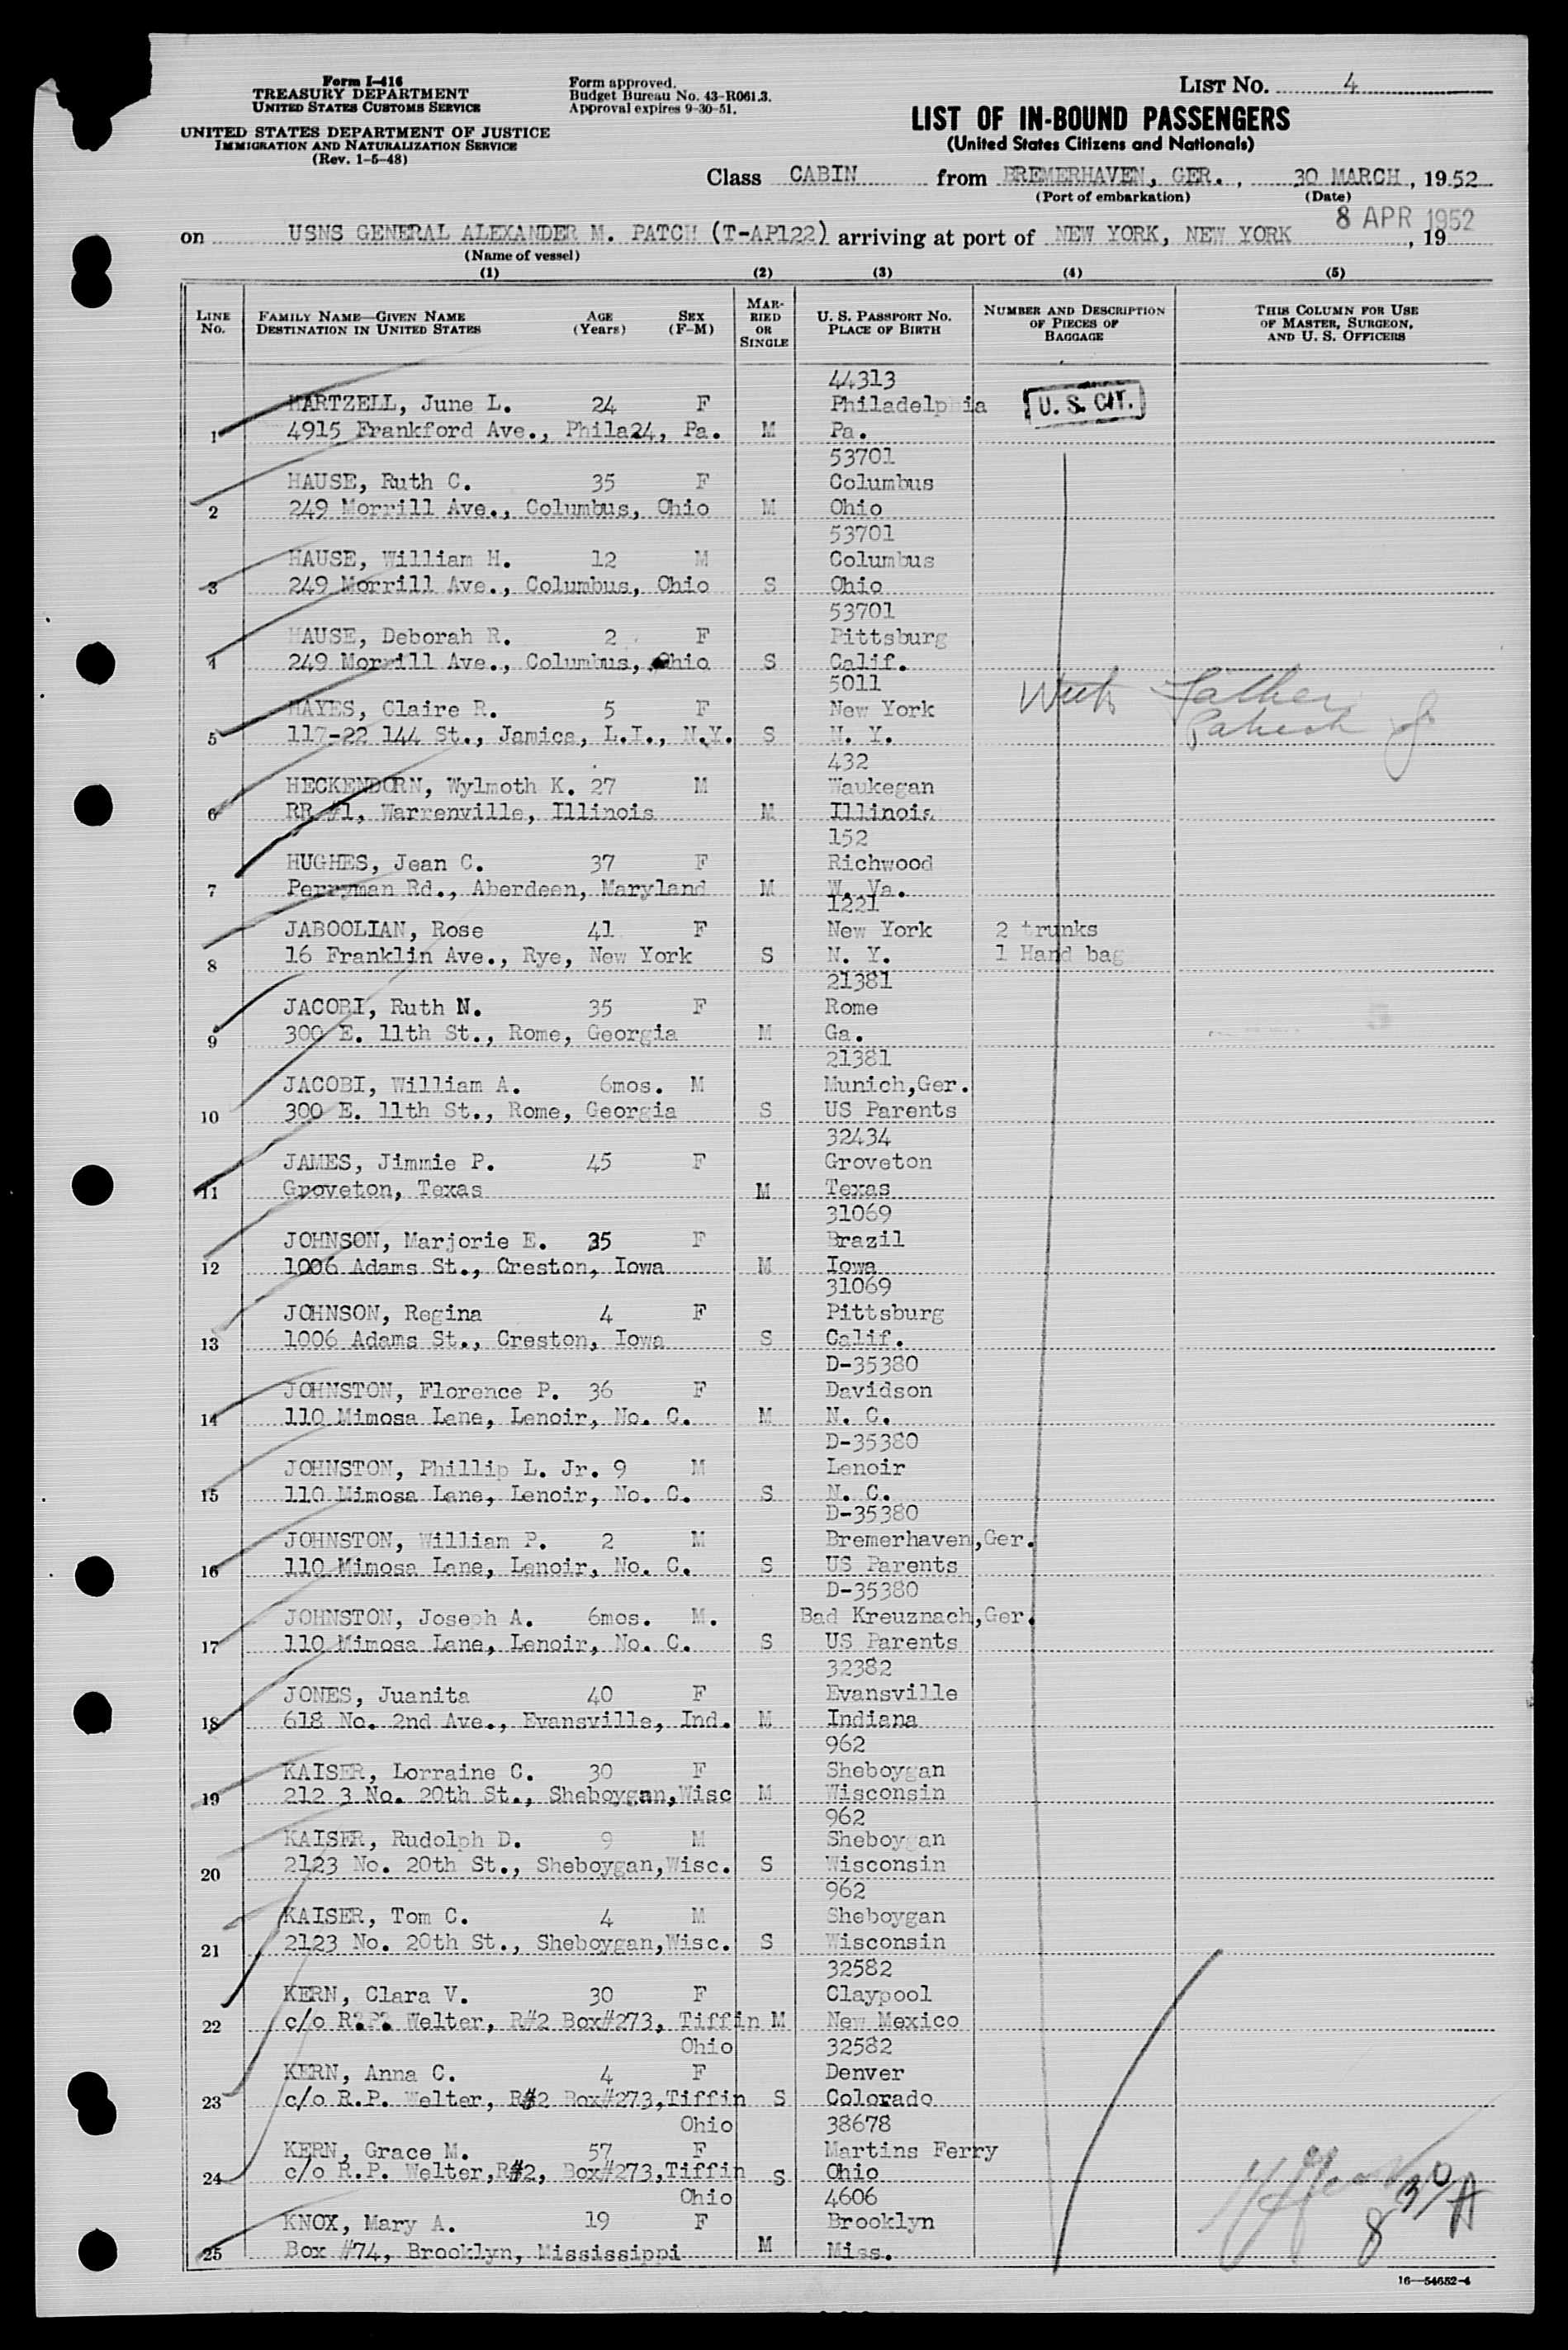 Form I-416
TREASURY DEPARTMENT
UNITED STATES CUSTOMS SERVICE
UNITED STATES DEPARTMENT OF JUSTICE
IMMIGRATION AND NATURALIZATION SERVICE
(Rev. 1-5-48)
Form approved.
Budget Bureau No. 43-R061.3.
Approval expires 9-30-51.
LIST No. 4
LIST OF IN-BOUND PASSENGERS
(United States Citizens and Nationals)
Class CABIN from BREMERHAVEN, GER., 30 MARCH, 1952
(Port of embarkation) (Date)
on USNS GENERAL ALEXANDER M. PATCH (T-AP122) arriving at port of NEW YORK, NEW YORK 8 APR 1952, 19
(Name of vessel)
(1) (2) (3) (4) (5)
LINE No. FAMILY NAME—GIVEN NAME DESTINATION IN UNITED STATES AGE (Years) SEX (F-M) MARRIED OR SINGLE U. S. PASSPORT NO. PLACE OF BIRTH NUMBER AND DESCRIPTION OF PIECES OF BAGGAGE THIS COLUMN FOR USE OF MASTER, SURGEON, AND U. S. OFFICERS
44313
HARTZELL, June L. 24 F Philadelphia U. S. CIT.
1 4915 Frankford Ave., Phila24, Pa. M Pa.
53701
HAUSE, Ruth C. 35 F Columbus
2 249 Morrill Ave., Columbus, Ohio M Ohio
53701
HAUSE, William H. 12 M Columbus
3 249 Morrill Ave., Columbus, Ohio S Ohio
53701
HAUSE, Deborah R. 2 F Pittsburg
4 249 Morrill Ave., Columbus, Ohio S Calif.
5011
HAYES, Claire R. 5 F New York With Father
5 117-22 144 St., Jamica, L.I., N.Y. S N. Y.
432
HECKENDORN, Wylmoth K. 27 M Waukegan
6 RR #1, Warrenville, Illinois M Illinois
152
HUGHES, Jean C. 37 F Richwood
7 Perryman Rd., Aberdeen, Maryland M W. Va.
1221
JABOOLIAN, Rose 41 F New York 2 trunks
8 16 Franklin Ave., Rye, New York S N. Y. 1 Hand bag
21381
JACOBI, Ruth N. 35 F Rome
9 300 E. 11th St., Rome, Georgia M Ga.
21381
JACOBI, William A. 6mos. M Munich,Ger.
10 300 E. 11th St., Rome, Georgia S US Parents
32434
JAMES, Jimmie P. 45 F Groveton
11 Groveton, Texas M Texas
31069
JOHNSON, Marjorie E. 35 F Brazil
12 1006 Adams St., Creston, Iowa M Iowa
31069
JOHNSON, Regina 4 F Pittsburg
13 1006 Adams St., Creston, Iowa S Calif.
D-35380
JOHNSTON, Florence P. 36 F Davidson
14 110 Mimosa Lane, Lenoir, No. C. M N. C.
D-35380
JOHNSTON, Phillip L. Jr. 9 M Lenoir
15 110 Mimosa Lane, Lenoir, No. C. S N. C.
D-35380
JOHNSTON, William P. 2 M Bremerhaven,Ger.
16 110 Mimosa Lane, Lenoir, No. C. S US Parents
D-35380
JOHNSTON, Joseph A. 6mos. M. Bad Kreuznach,Ger.
17 110 Mimosa Lane, Lenoir, No. C. S US Parents
32382
JONES, Juanita 40 F Evansville
18 618 No. 2nd Ave., Evansville, Ind. M Indiana
962
KAISER, Lorraine C. 30 F Sheboygan
19 212 3 No. 20th St., Sheboygan,Wisc M Wisconsin
962
KAISER, Rudolph D. 9 M Sheboygan
20 2123 No. 20th St., Sheboygan,Wisc. S Wisconsin
962
KAISER, Tom C. 4 M Sheboygan
21 2123 No. 20th St., Sheboygan,Wisc. S Wisconsin
32582
KERN, Clara V. 30 F Claypool
22 c/o R.P. Welter, R#2 Box#273, Tiffin M New Mexico
Ohio 32582
KERN, Anna C. 4 F Denver
23 c/o R.P. Welter, R#2 Box#273,Tiffin S Colorado
Ohio 38678
KERN, Grace M. 57 F Martins Ferry
24 c/o R.P. Welter,R#2, Box#273,Tiffin S Ohio
Ohio 4606
KNOX, Mary A. 19 F Brooklyn
25 Box #74, Brooklyn, Mississippi M Miss.
8 30/A
16—54652-4